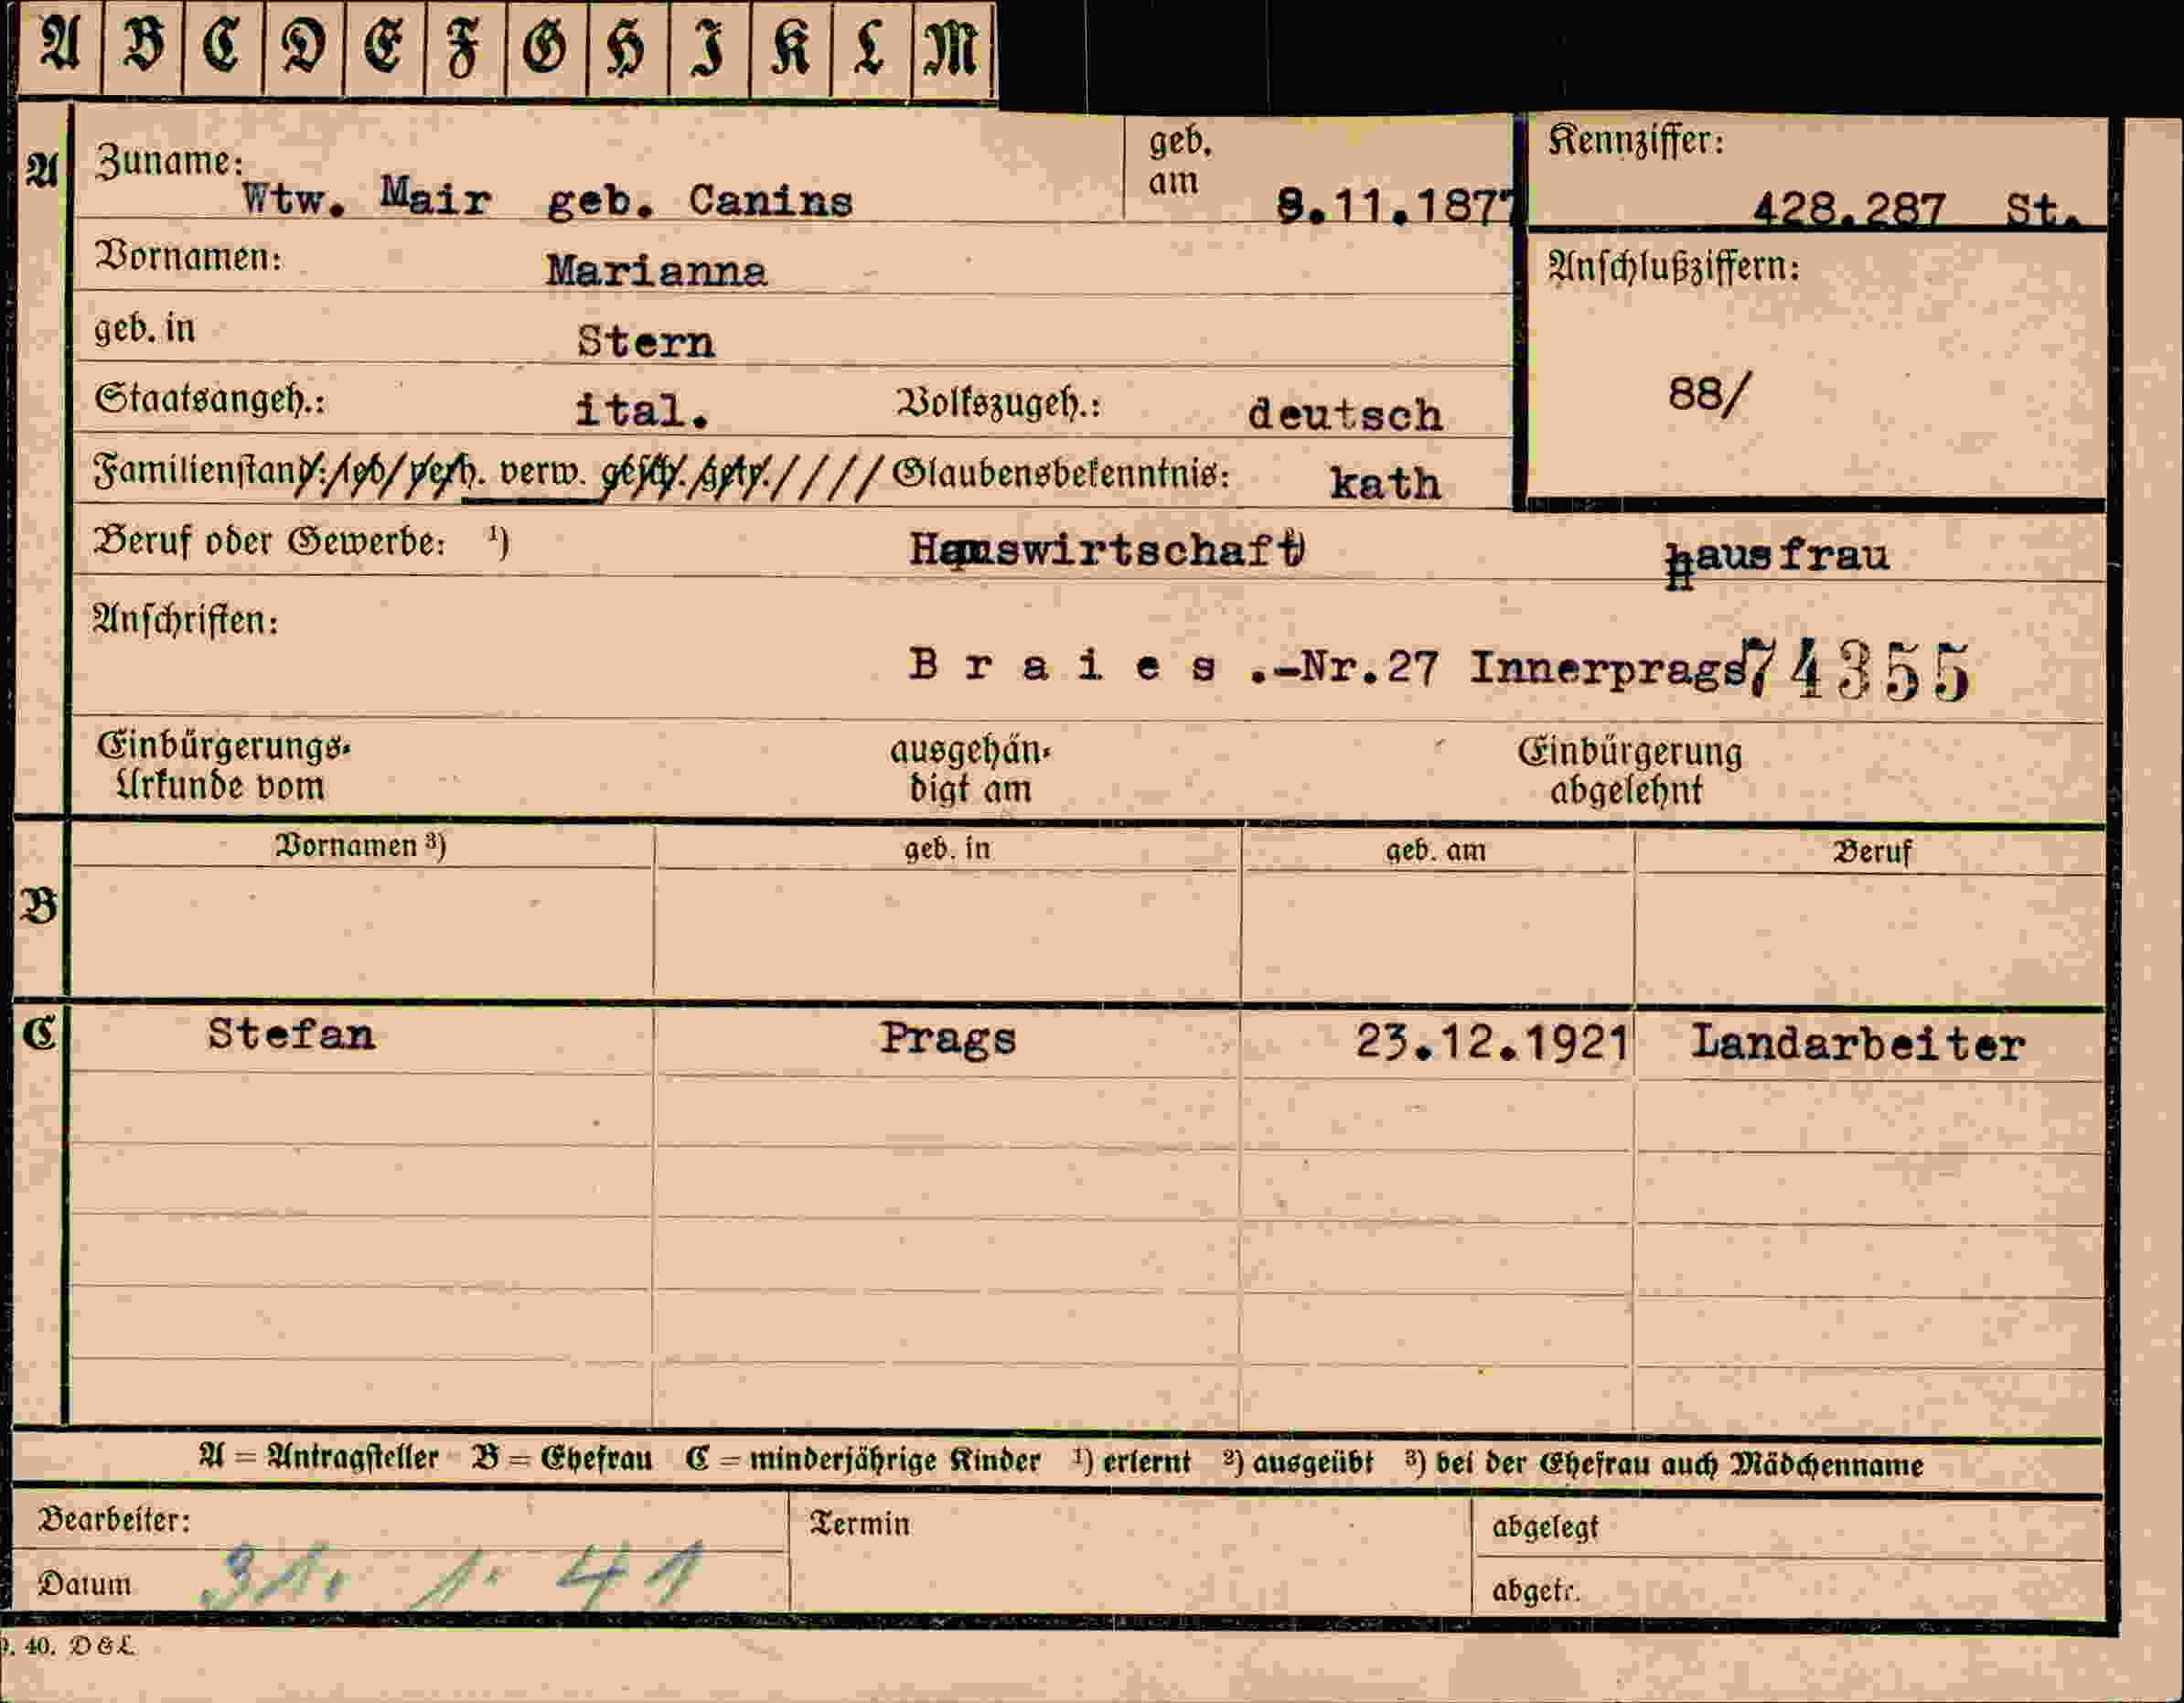 A B C D E F G H I K L M
A
Zuname: Wtw. Mair geb. Canins
geb. am 9.11.1877
Kennziffer: 428.287 St.
Vornamen: Marianna
Anschlußziffern:
geb. in Stern
88/
Staatsangeh.: ital. Volkszugeh.: deutsch
Familienstand: led. verh. verw. gesch. getr. Glaubensbekenntnis: kath
Beruf oder Gewerbe: ¹) Hauswirtschaft hausfrau
Anschriften:
Braies.-Nr.27 Innerprags 74355
Einbürgerungs- ausgehän- Einbürgerung
Urkunde vom digt am abgelehnt
Vornamen ³) geb. in geb. am Beruf
B
C Stefan Prags 23.12.1921 Landarbeiter
A = Antragsteller B = Ehefrau C = minderjährige Kinder ¹) erlernt ²) ausgeübt ³) bei der Ehefrau auch Mädchenname
Bearbeiter: Termin abgelegt
Datum 31. 1. 41 abgetr.
. 40. DGL